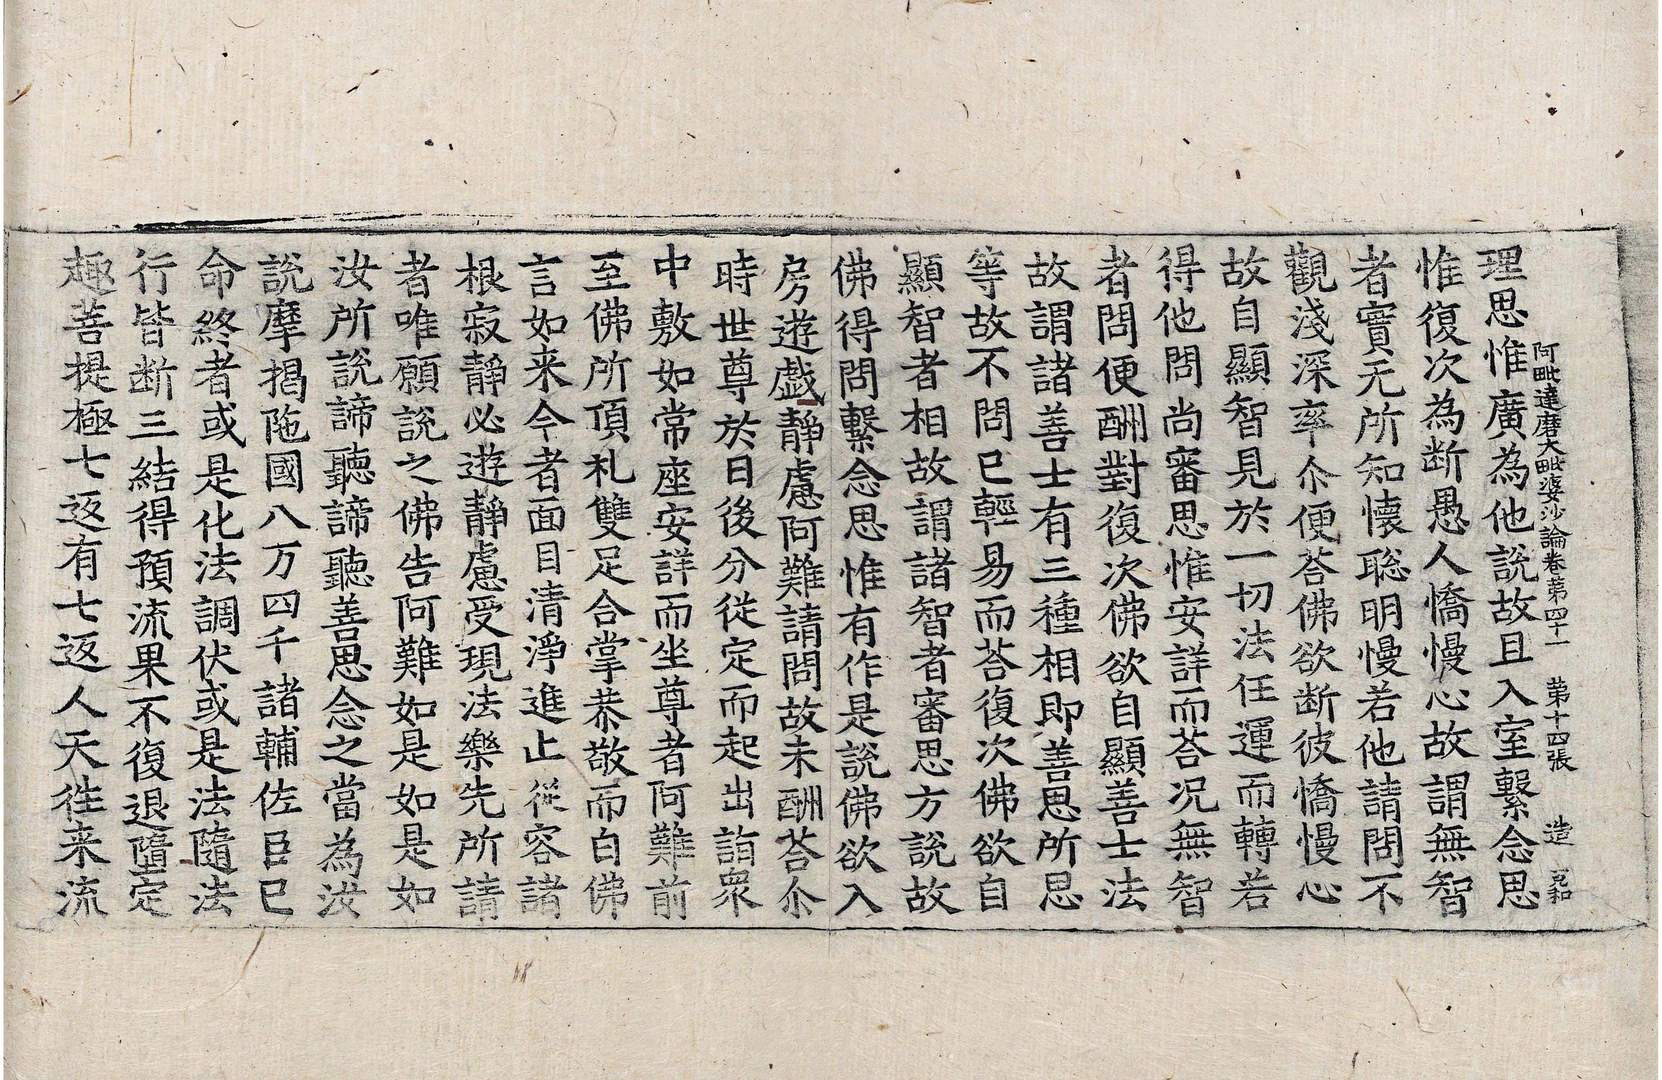 阿毗達磨大毗婆沙論卷第四十一 第十四張 造 克和
理思惟廣為他說故且入室繫念思
惟復次為断愚人憍慢心故謂無智
者實无所知懷聡明慢若他請問不
觀淺深率尒便荅佛欲断彼憍慢心
故自顯智見於一切法任運而轉若
得他問尚審思惟安詳而荅況無智
者問便酬對復次佛欲自顯善士法
故謂諸善士有三種相即善思所思
等故不問已輕易而荅復次佛欲自
顯智者相故謂諸智者審思方說故
佛得問繫念思惟有作是說佛欲入
房遊戯靜慮阿難請問故未酬荅尒
時世尊於日後分從定而起出詣衆
中敷如常座安詳而坐尊者阿難前
至佛所頂札雙足合掌恭敬而白佛
言如来今者面目清淨進止從容諸
根寂靜必遊靜慮受現法樂先所請
者唯願說之佛告阿難如是如是如
汝所說諦聽諦聽善思念之當為汝
說摩揭陁國八万四千諸輔佐臣已
命終者或是化法調伏或是法隨法
行皆断三結得預流果不復退墮定
趣菩提極七返有七返人天徃来流